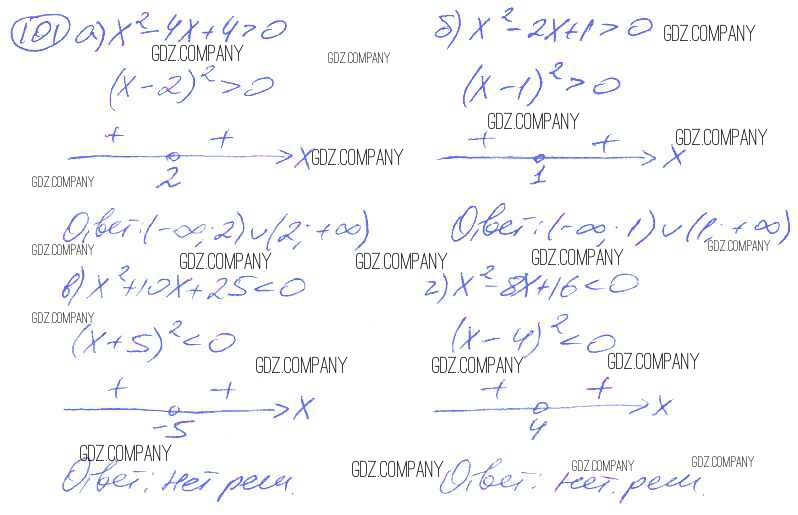 101 а) x² - 4x + 4 > 0
GDZ.COMPANY
GDZ.COMPANY
(x - 2)² > 0
+ +
2 x
GDZ.COMPANY
GDZ.COMPANY
Ответ: (-∞; 2) ∪ (2; +∞)
б) x² - 2x + 1 > 0
GDZ.COMPANY
(x - 1)² > 0
GDZ.COMPANY
+ +
GDZ.COMPANY
1 x
Ответ: (-∞; 1) ∪ (1; +∞)
GDZ.COMPANY
GDZ.COMPANY
GDZ.COMPANY
GDZ.COMPANY
GDZ.COMPANY
в) x² + 10x + 25 < 0
GDZ.COMPANY
(x + 5)² < 0
GDZ.COMPANY
+ +
-5 x
GDZ.COMPANY
Ответ: нет реш.
г) x² - 8x + 16 < 0
(x - 4)² < 0
GDZ.COMPANY
GDZ.COMPANY
+ +
4 x
GDZ.COMPANY
Ответ: нет. реш.
GDZ.COMPANY
GDZ.COMPANY